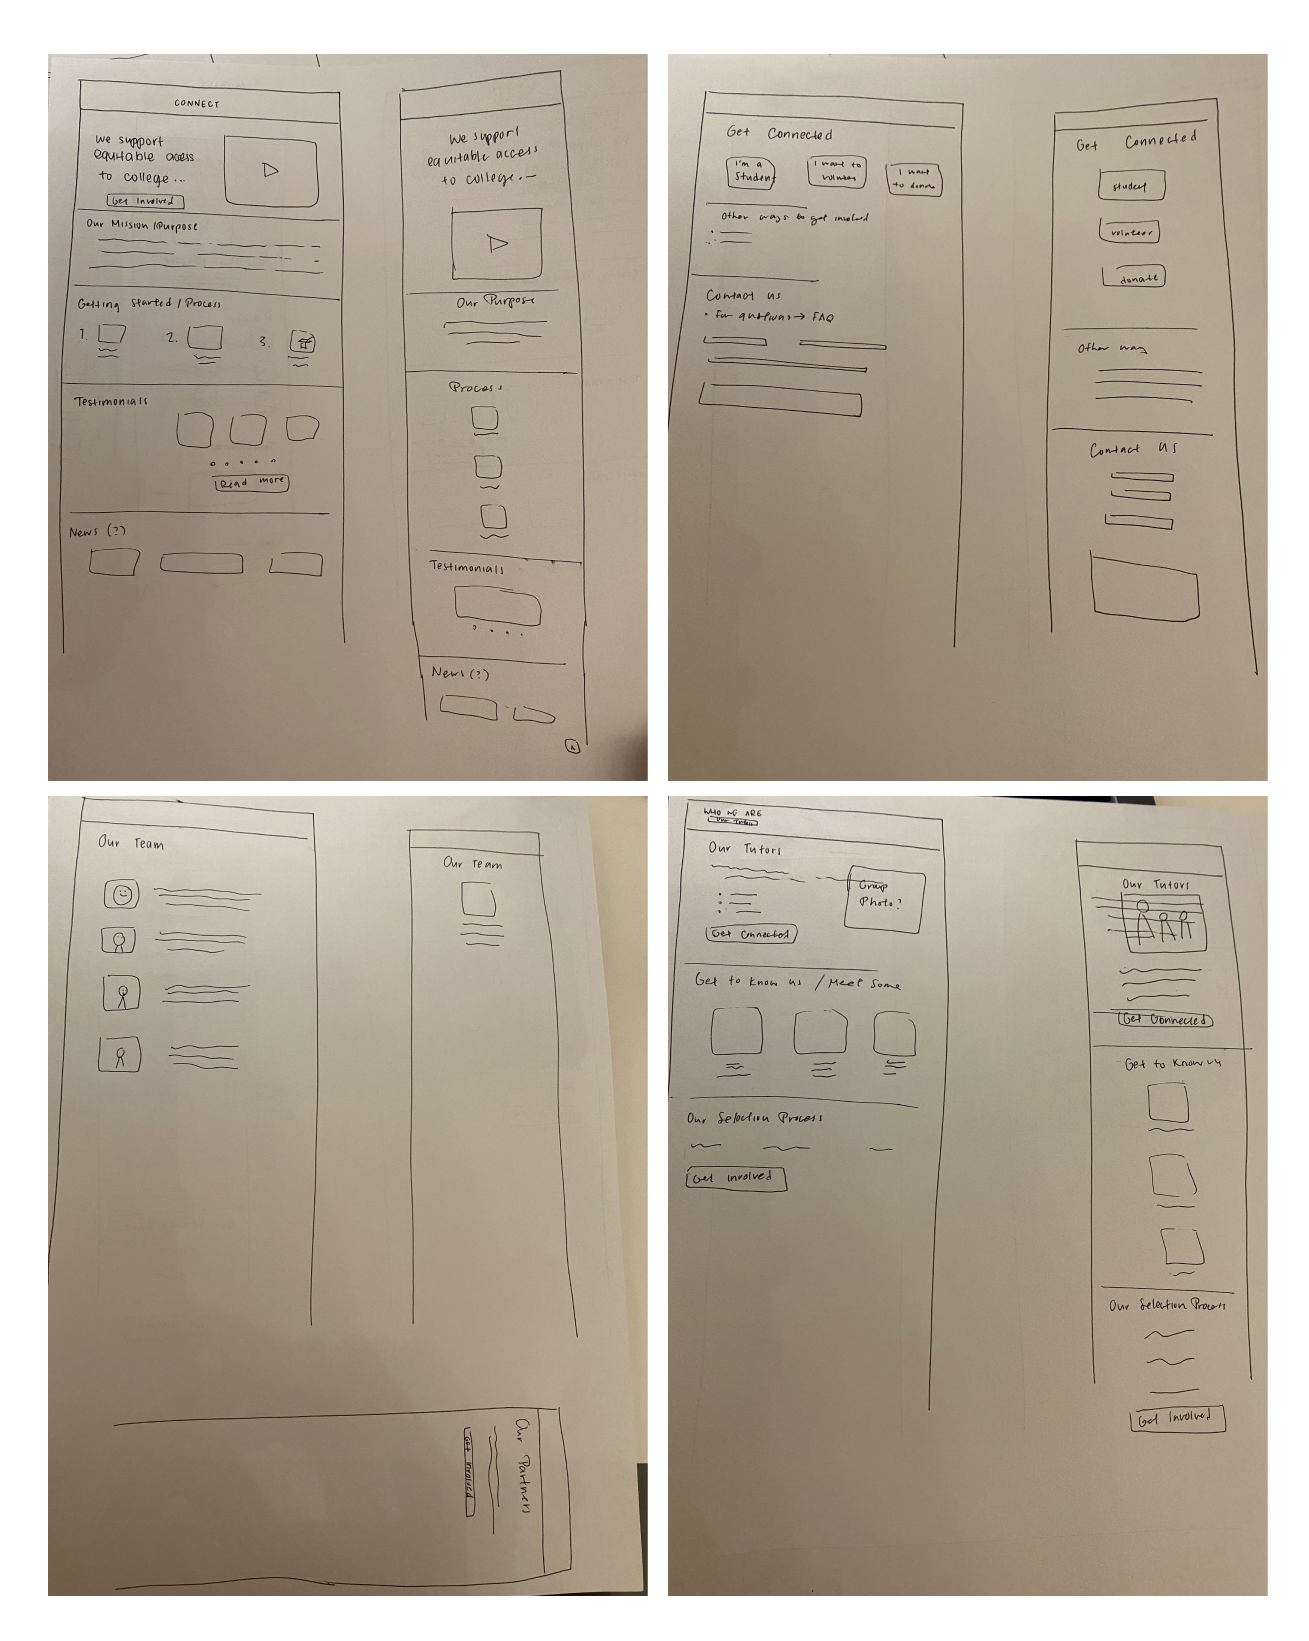 CONNECT
We support
equitable access
to college...
Get Involved
Our Mission/Purpose
Getting Started / Process
1.
2.
3.
Testimonials
Read more
News (?)
We support
equitable access
to college...
Our Purpose
Process
Testimonials
News (?)
Get Connected
I'm a
Student
I want to
volunteer
I want
to donate
Other ways to get involved
Contact us
• For questions → FAQ
Get Connected
student
volunteer
donate
Other way
Contact us
Our Team
Our Team
Our Partners
Get Involved
WHO WE ARE
Our Tutors
Our Tutors
Group
Photo?
Get Connected
Get to know us / Meet some
Our Selection Process
Get Involved
Our Tutors
Get Connected
Get to Know us
Our Selection Process
Get Involved